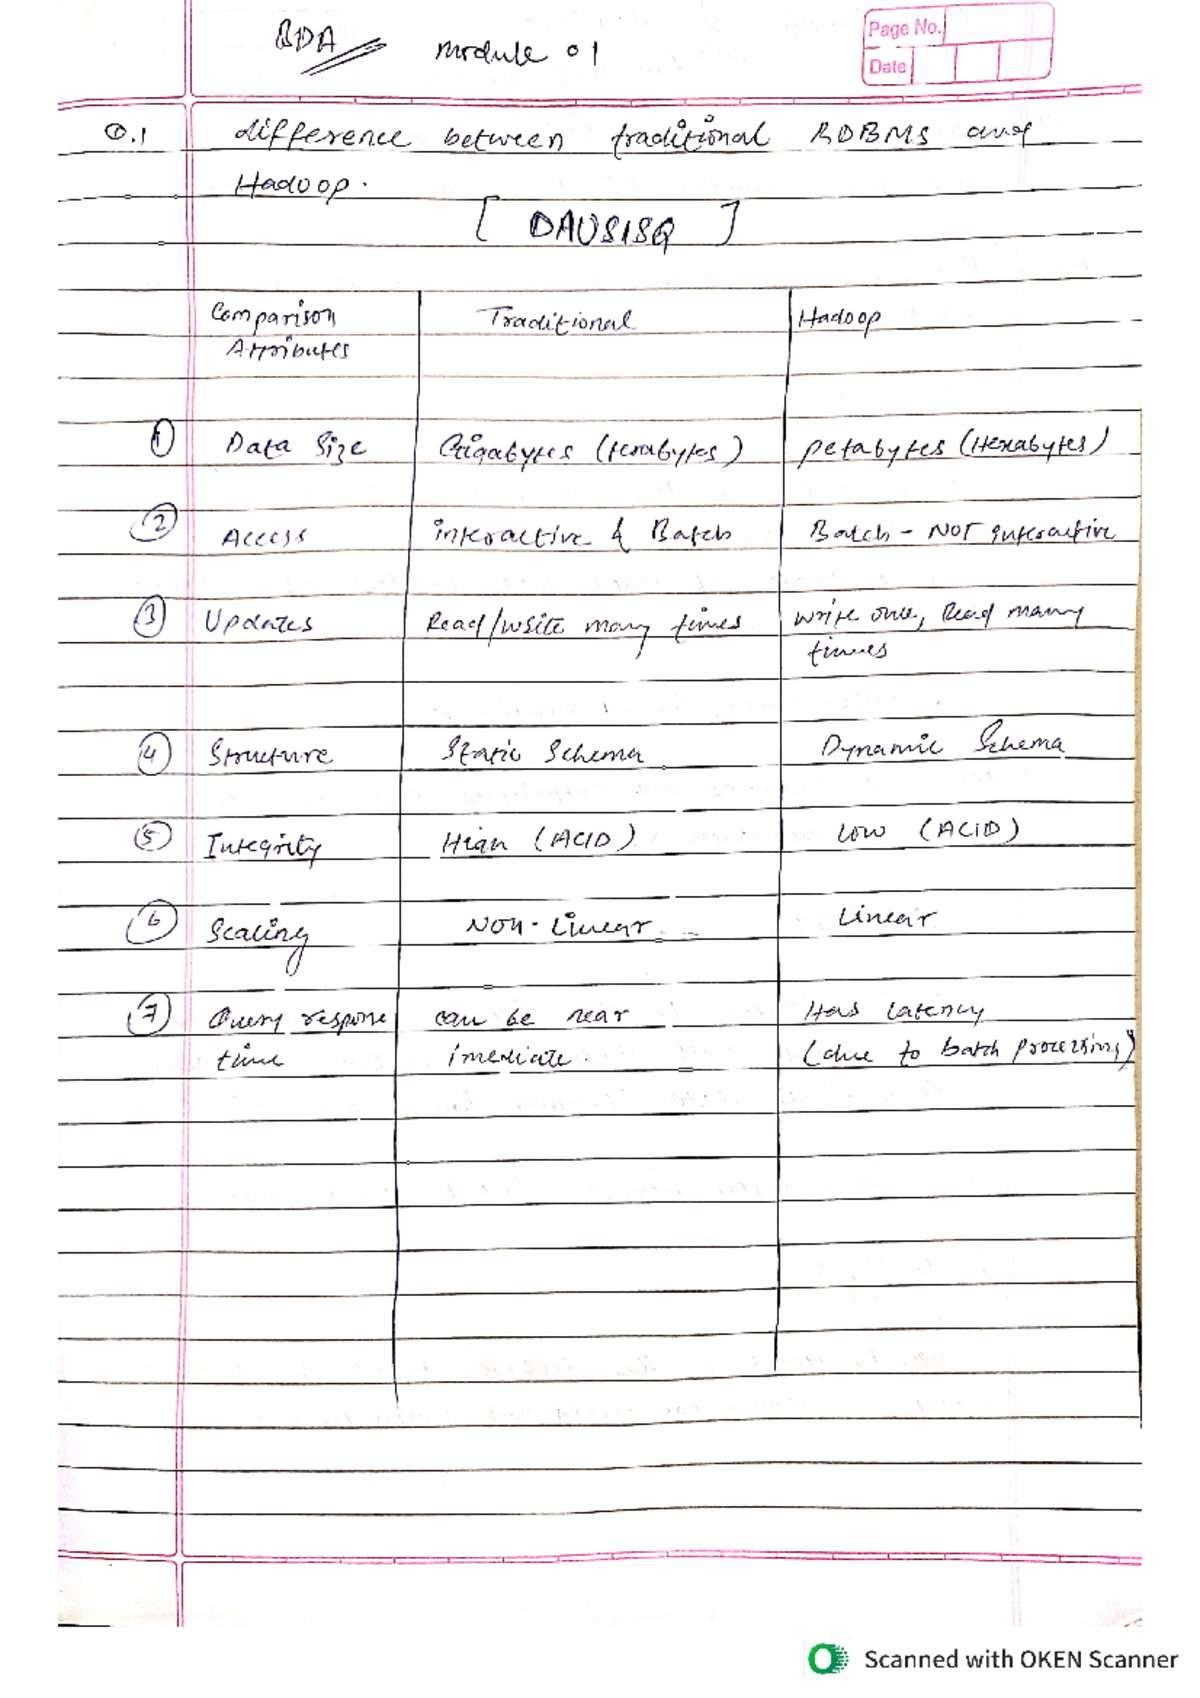 BDA Module 01
Page No.
Date
Q.1 difference between traditional RDBMS and
Hadoop.
[ DAUSISQ ]
Comparison Attributes Traditional Hadoop
① Data Size Gigabytes (terabytes) petabytes (Hexabytes)
② Access interactive & Batch Batch - NOT interactive
③ Updates Read/write many times write once, Read many
times
④ Structure Static Schema Dynamic Schema
⑤ Integrity High (ACID) Low (ACID)
⑥ Scaling Non-Linear Linear
⑦ Query response can be near Has latency
time imediate. (due to batch processing)
Scanned with OKEN Scanner